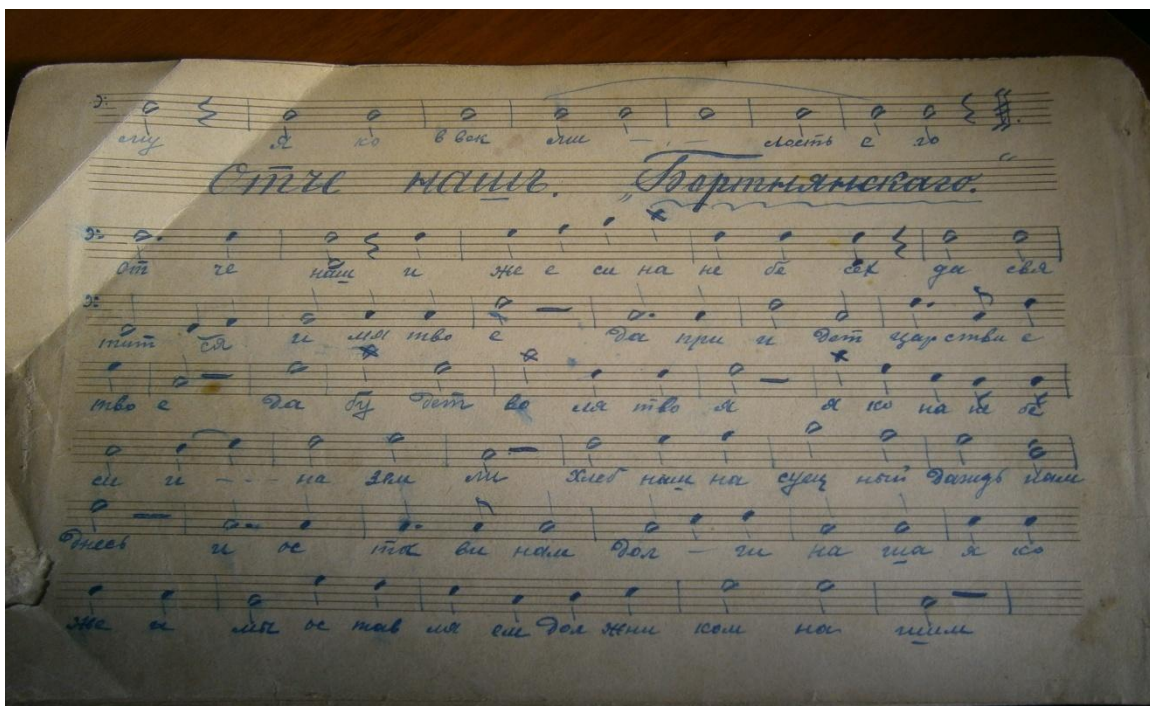 ему я ко в век ми - - лость е го
Отче нашъ. „Бортнянскаго.“
от че наш и же е си на не бе сех да свя
тит ся и мя тво е да при и дет цар стви е
тво е да бу дет во ля тво я я ко на не бе
си и - - - на зем ли хлеб наш на сущ ный даждь нам
днесь и ос та ви нам дол - ги на ша я ко
же и мы ос тав ля ем дол жни ком на шим